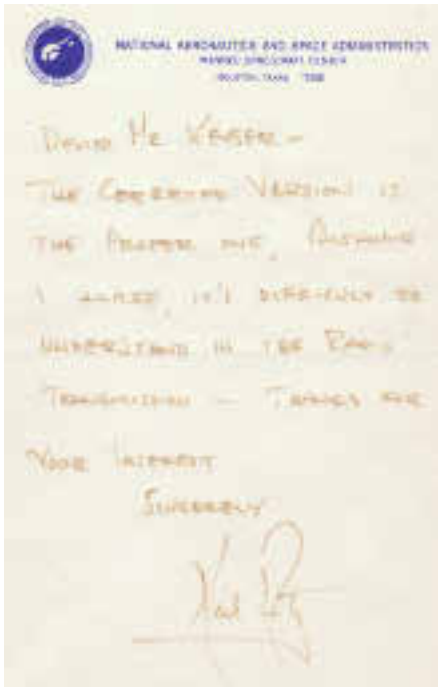 NATIONAL AERONAUTICS AND SPACE ADMINISTRATION
MANNED SPACECRAFT CENTER
HOUSTON, TEXAS
DEAR MR
THE CORRECTED VERSION IS
THE PROPER ONE, ALTHOUGH
I AGREE, IT'S DIFFICULT TO
UNDERSTAND IN THE RADIO
TRANSMISSION – THANKS FOR
YOUR INTEREST
SINCERELY